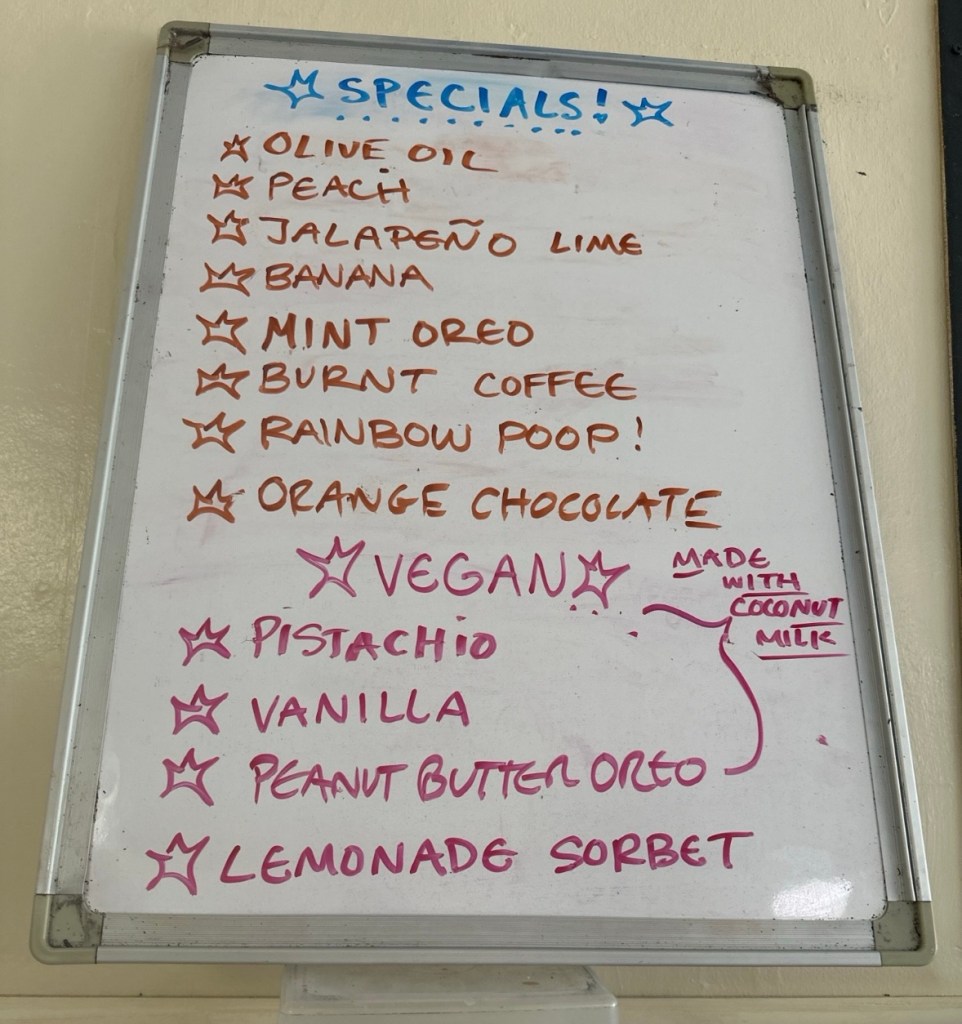 SPECIALS!
OLIVE OIL
PEACH
JALAPEÑO LIME
BANANA
MINT OREO
BURNT COFFEE
RAINBOW POOP!
ORANGE CHOCOLATE
VEGAN
MADE
WITH
COCONUT
MILK
PISTACHIO
VANILLA
PEANUT BUTTER OREO
LEMONADE SORBET